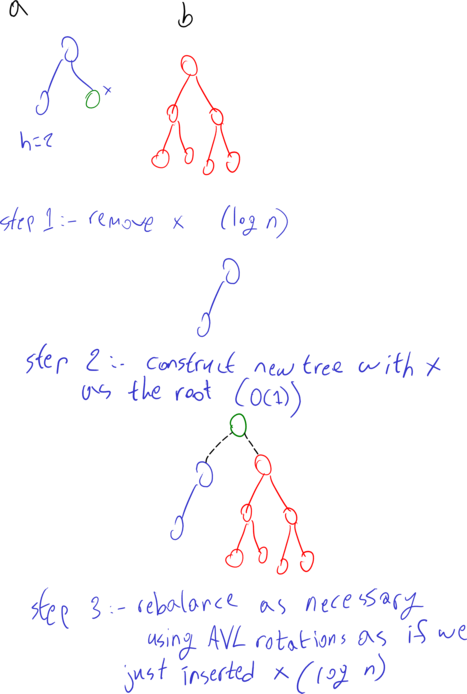 a b
x
h=2
step 1:- remove x (log n)
step 2:- construct new tree with x
as the root (O(1))
step 3:- rebalance as necessary
using AVL rotations as if we
just inserted x (log n)